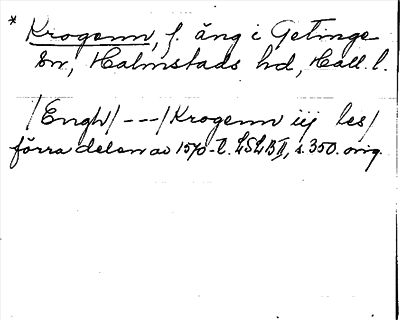 * Krogenn, f. äng i Getinge
sn, Halmstads hd, Hall. l.
/Engh/ ---/Krogenn iij les/
förra delen av 1570-t. LSLBII, s. 350. orig.